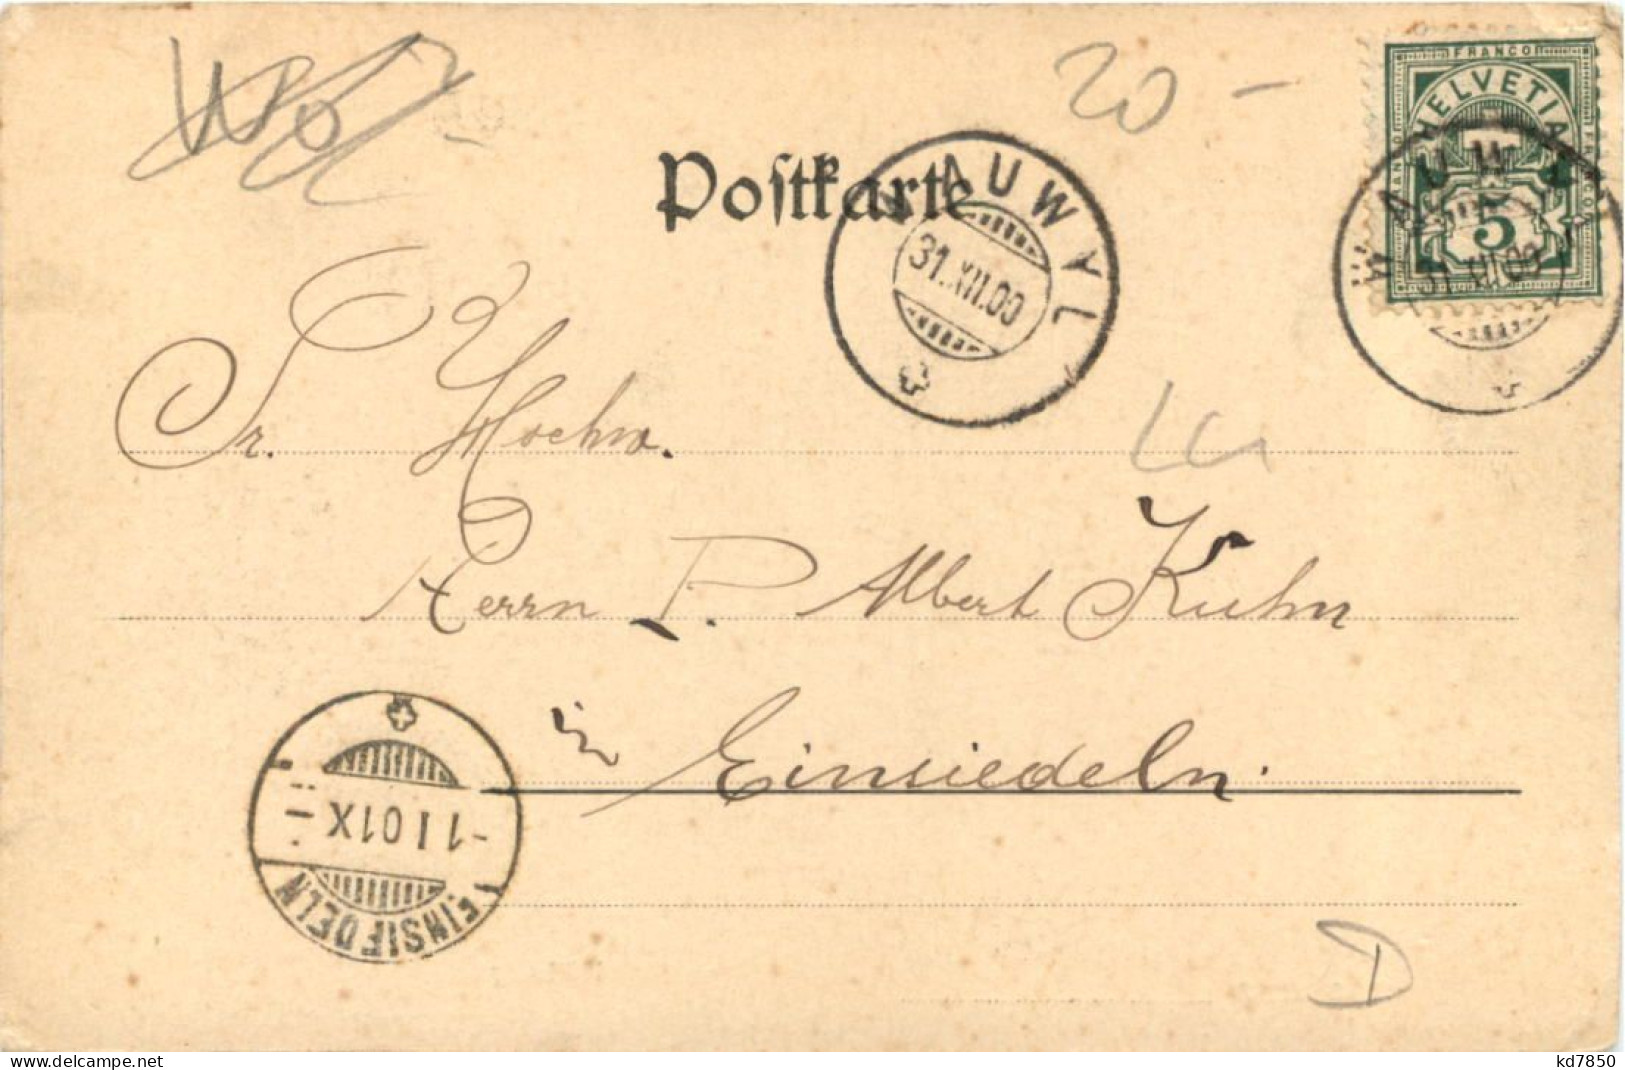 20 -
Poſtkarte
WAUWYL
31.XII.00
FRANCO
HELVETIA
5
WAUWYL
31.XII.00
Sr. Hochw.
Herrn P. Albert Kuhn
in Einsiedeln.
-1 I 01 X-
EINSIEDELN
D
www.delcampe.net
kd7850